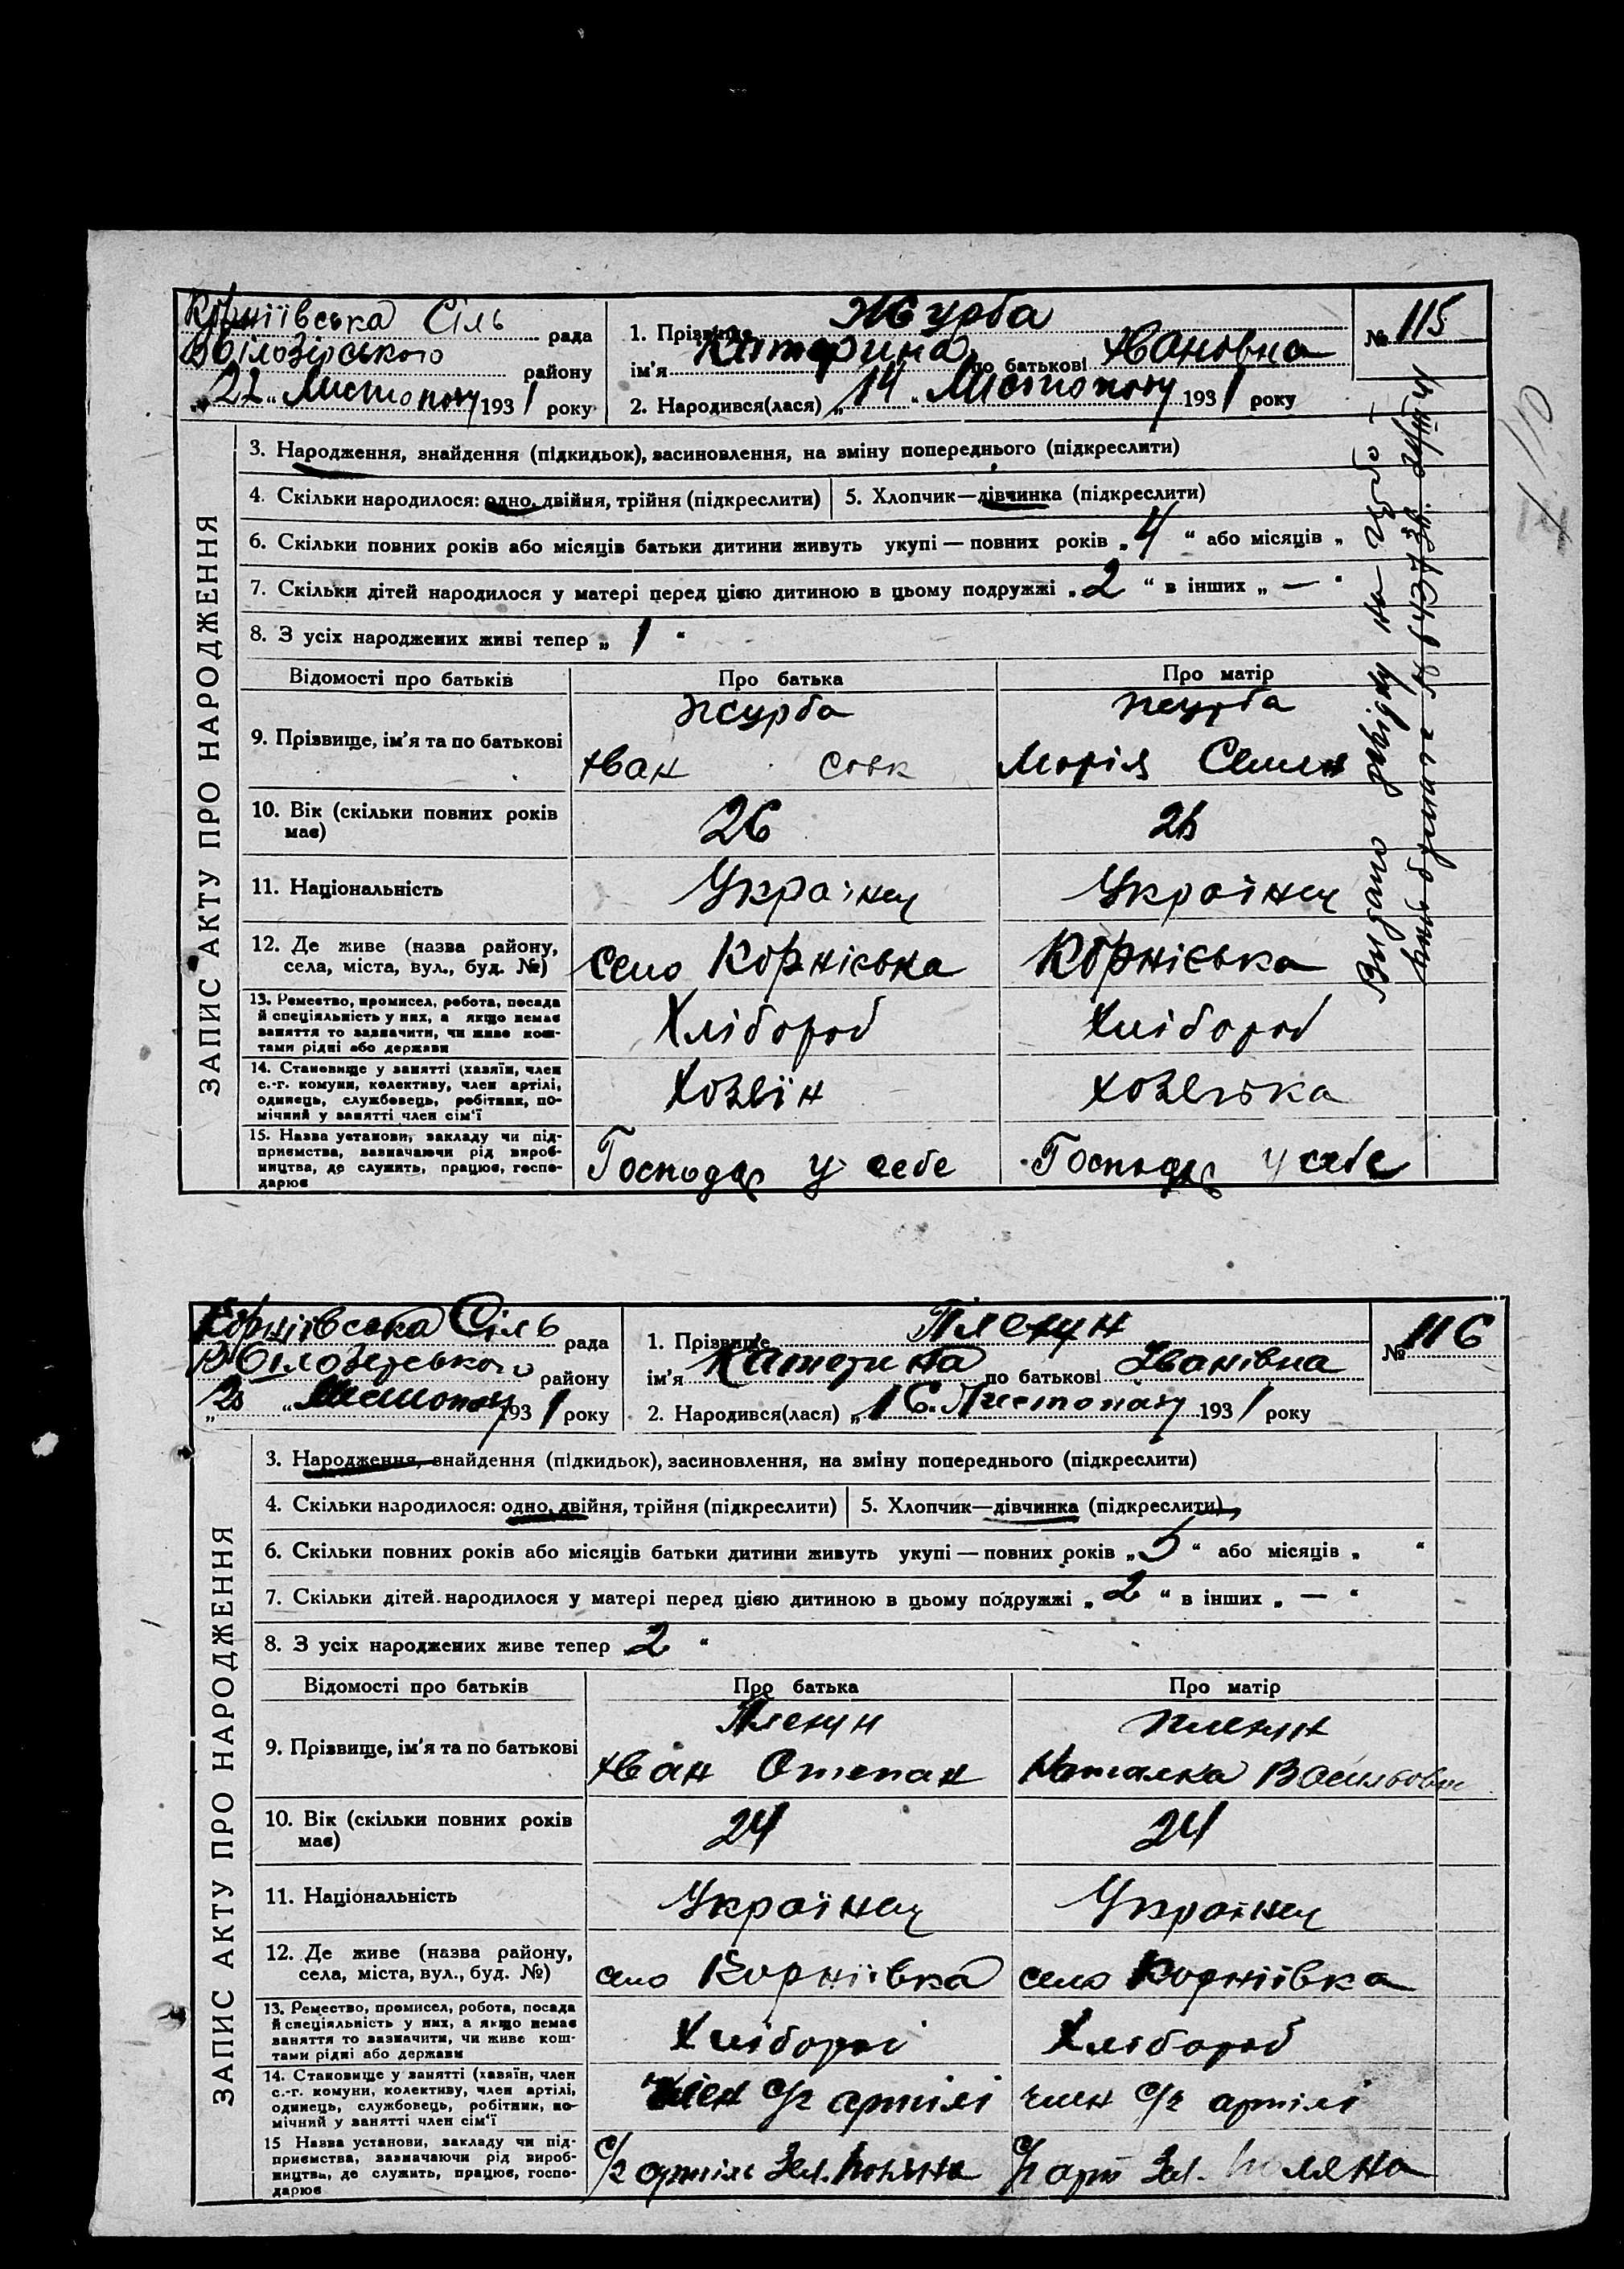 Корніївська Сіль рада
В Білозірського району
„22“ Листоподу 1931 року
1. Прізвище Журба
ім'я Катерина по батькові Івановна
2. Народився(лася) „14“ Листоподу 1931 року
№ 115
ЗАПИС АКТУ ПРО НАРОДЖЕННЯ
3. Народження, знайдення (підкидьок), засиновлення, на зміну попереднього (підкреслити)
4. Скільки народилося: одно, двійня, трійня (підкреслити) 5. Хлопчик—дівчинка (підкреслити)
6. Скільки повних років або місяців батьки дитини живуть укупі — повних років „4“ або місяців „
7. Скільки дітей народилося у матері перед цією дитиною в цьому подружжі „2“ в інших „—“
8. З усіх народжених живі тепер „1“
Відомості про батьків Про батька Про матір
9. Прізвище, ім'я та по батькові
Журба Журба
Іван Марія Семен
10. Вік (скільки повних років має) 26
11. Національність Українец Українец
12. Де живе (назва району, села, міста, вул., буд. №) Село Корніська Корніська
13. Ремество, промисел, робота, посада
й спеціяльність у них, а якщо немає
заняття то зазначити, чи живе кош-
тами рідні або держави
Хлібороб Хлібороб
14. Становище у занятті (хазяїн, член
с.-г. комуни, колективу, член артілі,
одинець, службовець, робітник, по-
мічний у занятті член сім'ї
Хозяїн хозяська
15. Назва установи, закладу чи під-
приємства, зазначаючи рід вироб-
ництва, де служить, працює, госпо-
дарює
Господар у себе Господар у себе
Видано довідку на
Корніївська Сіль рада
В Білозерського району
„ “ Листоподу 1931 року
1. Прізвище Плекун
ім'я Катерина по батькові Іванівна
2. Народився(лася) „16“ Листопаду 1931 року
№ 116
ЗАПИС АКТУ ПРО НАРОДЖЕННЯ
3. Народження, знайдення (підкидьок), засиновлення, на зміну попереднього (підкреслити)
4. Скільки народилося: одно, двійня, трійня (підкреслити) 5. Хлопчик—дівчинка (підкреслити)
6. Скільки повних років або місяців батьки дитини живуть укупі — повних років „5“ або місяців „ “
7. Скільки дітей народилося у матері перед цією дитиною в цьому подружжі „2“ в інших „—“
8. З усіх народжених живе тепер 2“
Відомості про батьків Про батька Про матір
9. Прізвище, ім'я та по батькові
Плекун Плекун
Іван Степан Наталка Васильовн
10. Вік (скільки повних років має) 24 24
11. Національність Українец Українец
12. Де живе (назва району, села, міста, вул., буд. №) село Корніївка село Корніївка
13. Ремество, промисел, робота, посада
й спеціяльність у них, а якщо немає
заняття то зазначити, чи живе кош-
тами рідні або держави
Хлібороб Хлібороб
14. Становище у занятті (хазяїн, член
с.-г. комуни, колективу, член артілі,
одинець, службовець, робітник, по-
мічний у занятті член сім'ї
член С/г артілі член С/г артілі
15 Назва установи, закладу чи під-
приємства, зазначаючи рід вироб-
ництва, де служить, працює, госпо-
дарює
С/г артіль Зел. поляна С/г арт Зел. поляна